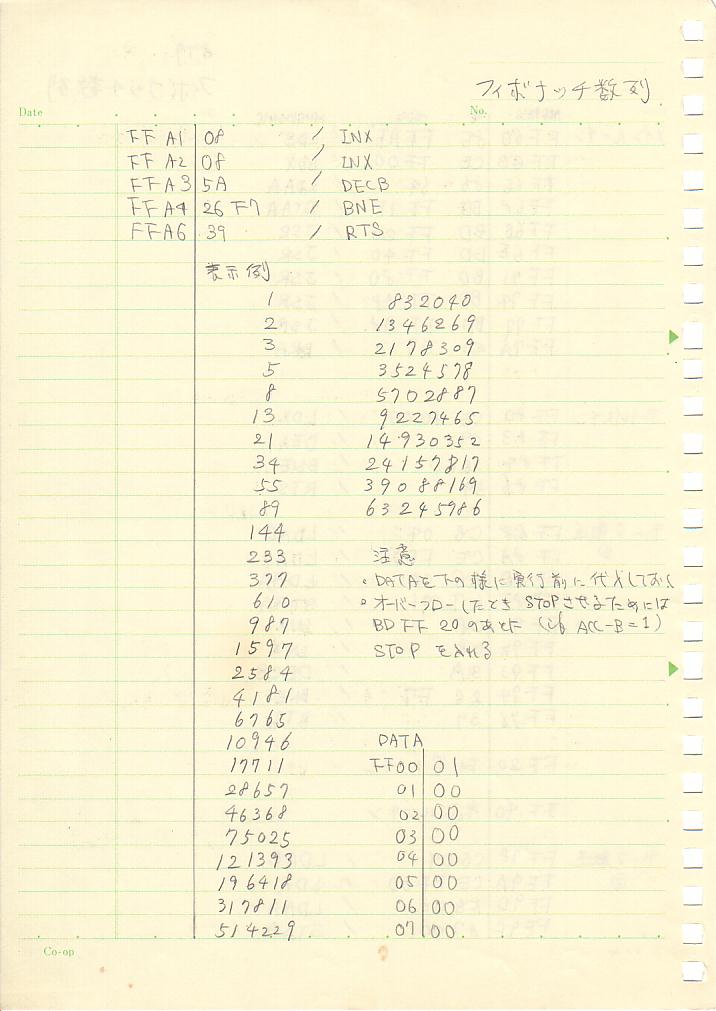 フィボナッチ数列
Date No.
FF A1 08 / INX
FF A2 08 / INX
FF A3 5A / DECB
FF A4 26 F7 / BNE
FF A6 39 / RTS
表示例
1 832040
2 1346269
3 2178309
5 3524578
8 5702887
13 9227465
21 14930352
34 24157817
55 39088169
89 63245986
144
233 注意
377 。DATAを下の様に実行前に代入しておく
610 。オーバーフローしたとき STOPさせるためには
987 BD FF 20 のあとに (if ACC-B=1)
1597 STOP を入れる
2584
4181
6765
10946 DATA
17711 FF00 01
28657 01 00
46368 02 00
75025 03 00
121393 04 00
196418 05 00
317811 06 00
514229 07 00
Co-op